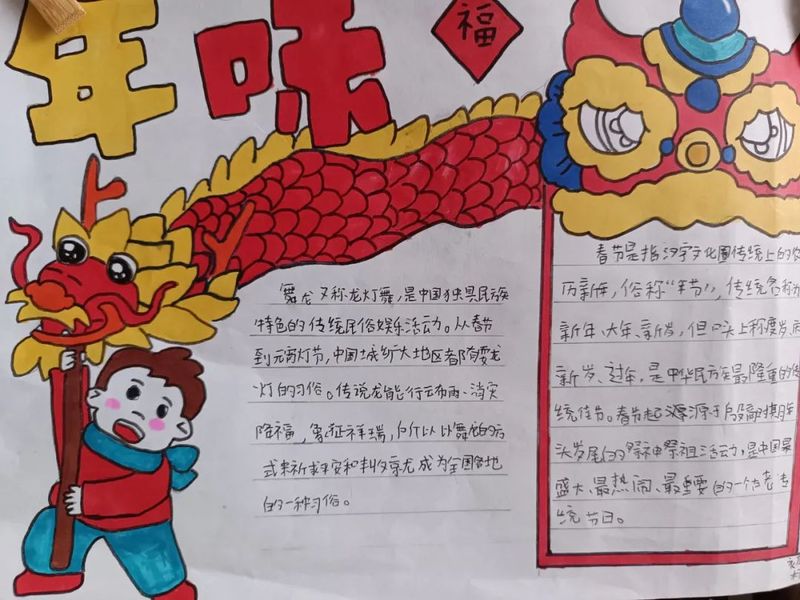 年味
福
舞龙又称龙灯舞，是中国独具民族
特色的传统民俗娱乐活动。从春节
到元宵灯节，中国城乡广大地区都有耍龙
灯的习俗。传说龙能行云布雨、消灾
降福，象征祥瑞，所以以舞龙的方
式来祈求平安和丰收就成为全国各地
的一种习俗。
春节是指汉字文化圈传统上的农
历新年，俗称“年节”，传统名称为
新年、大年、新岁，但口头上称度岁、
新岁、过年，是中华民族最隆重的传
统佳节。春节起源于殷商时期年
头岁尾的祭神祭祖活动，是中国最
盛大、最热闹、最重要的一个古老传
统节日。